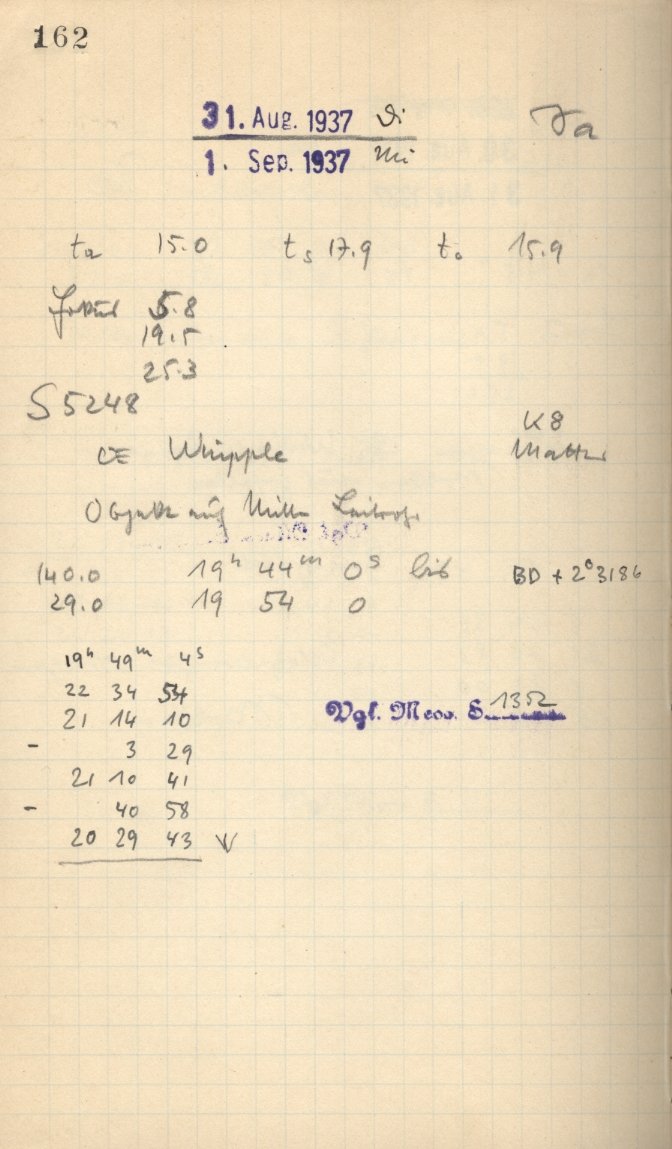 162
31. Aug. 1937 Di
1. Sep. 1937 Mi
Ja
ta 15.0 ts 17.9 to 15.9
Fokus 5.8
19.5
25.3
S 5248
K8
Whipple
Objekt auf Mitte
140.0 19h 44m 0s bis BD + 2°3186
29.0 19 54 0
19h 49m 4s
22 34 54
21 14 10
Vgl. Mess. S. 1352
- 3 29
21 10 41
- 40 58
20 29 43